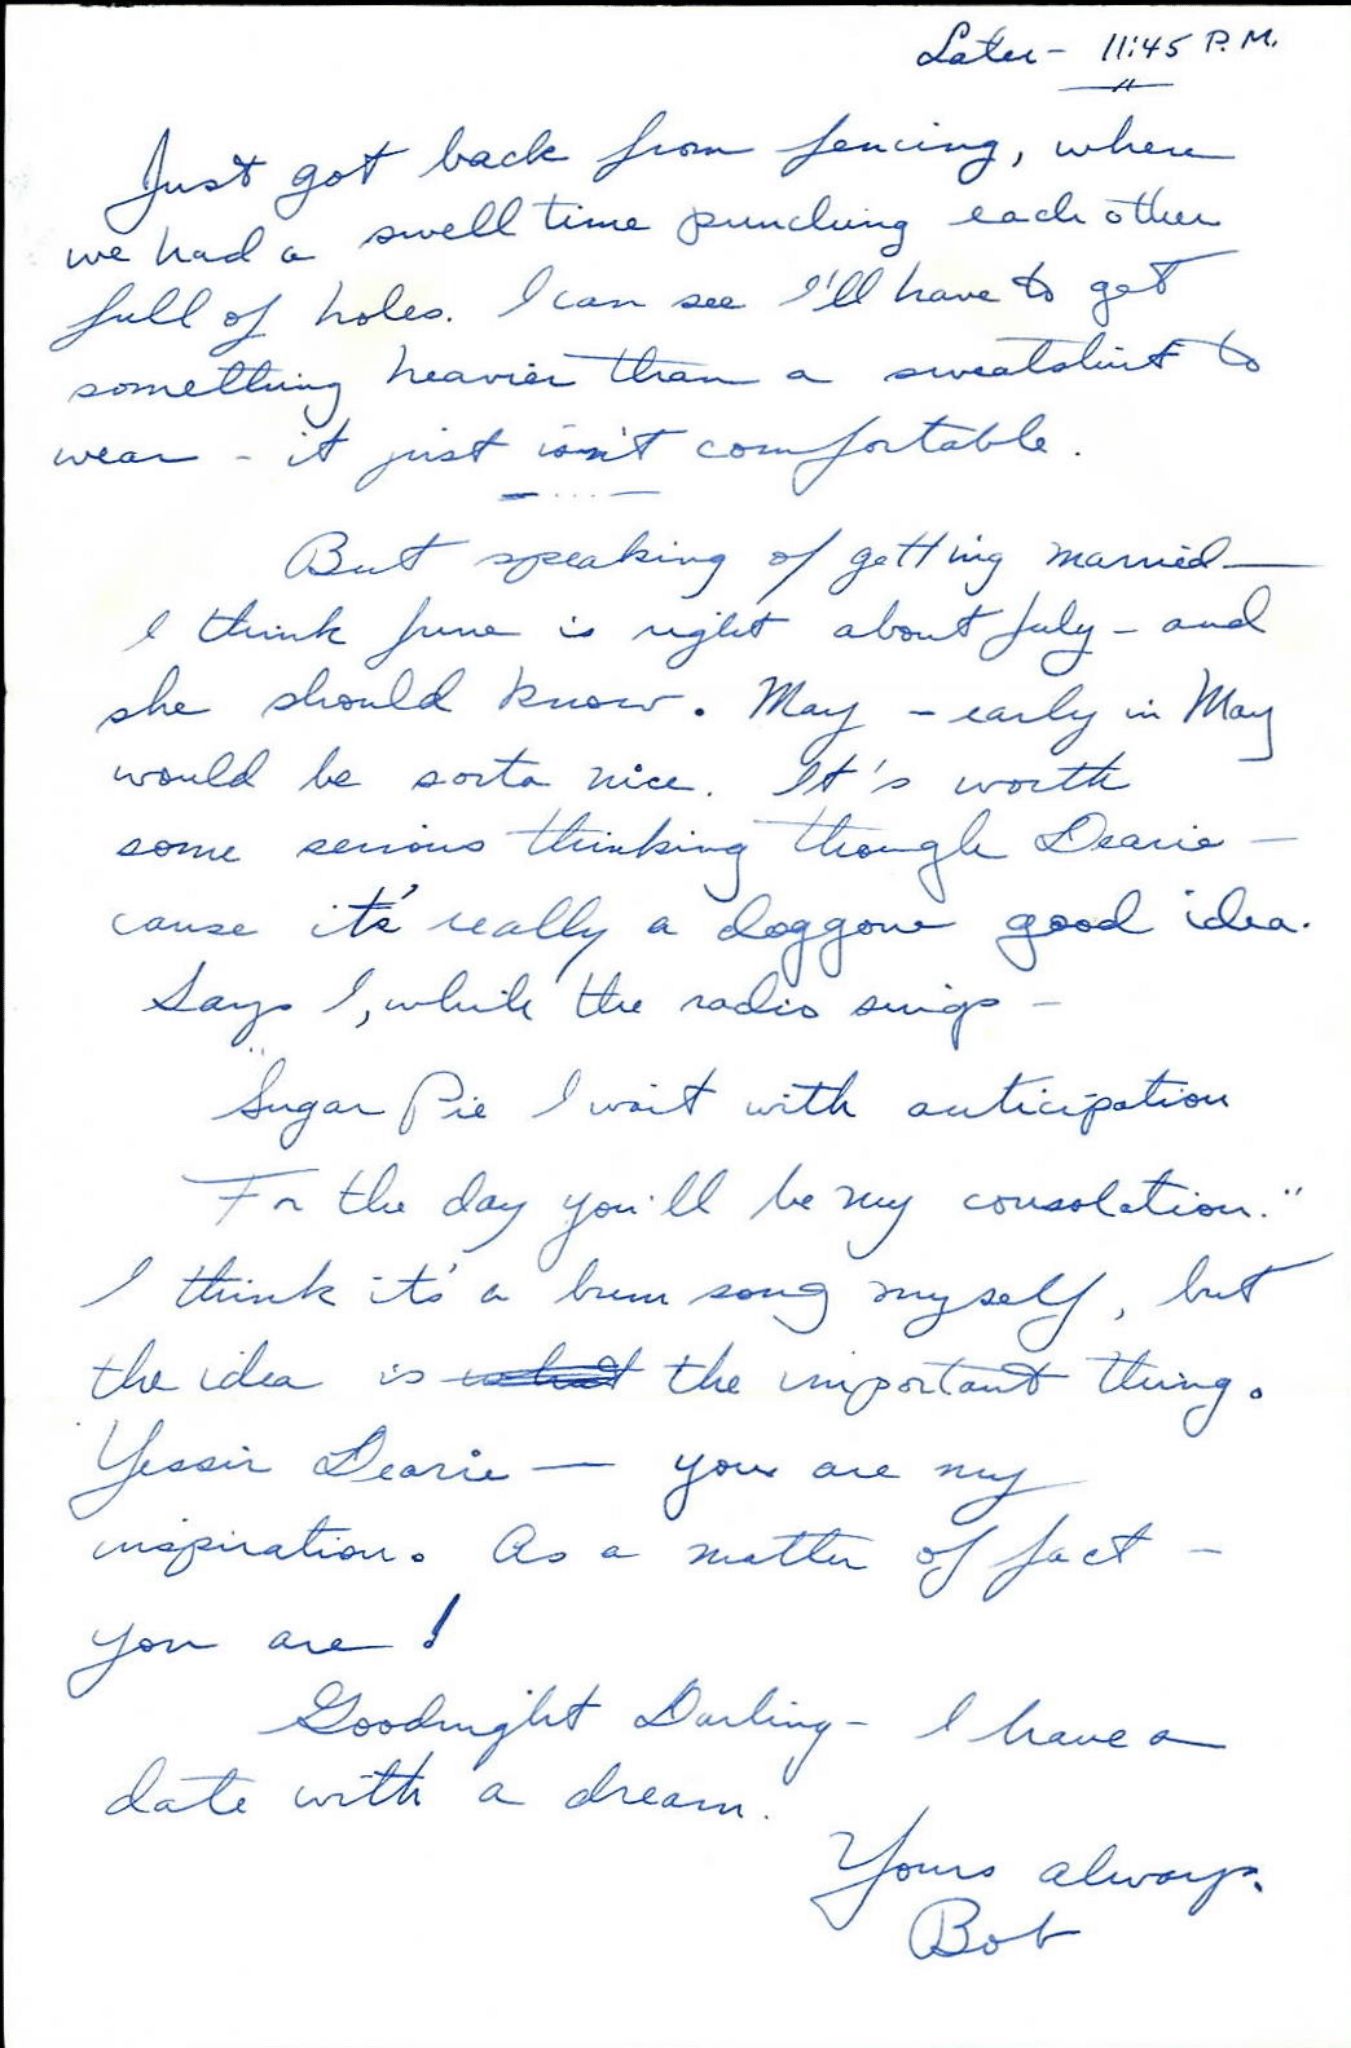 Later - 11:45 P.M.
Just got back from fencing, where
we had a swell time punching each other
full of holes. I can see I'll have to get
something heavier than a sweatshirt to
wear - it just isn't comfortable.
But speaking of getting married —
I think June is right about July - and
she should know. May - early in May
would be sorta nice. It's worth
some serious thinking though Dearie -
cause it's really a doggone good idea.
Says I, while the radio sings -
"Sugar Pie I wait with anticipation
For the day you'll be my consolation."
I think it's a bum song myself, but
the idea is what the important thing.
Yessir Dearie — you are my
inspiration. As a matter of fact -
you are!
Goodnight Darling - I have a
date with a dream.
Yours always,
Bob